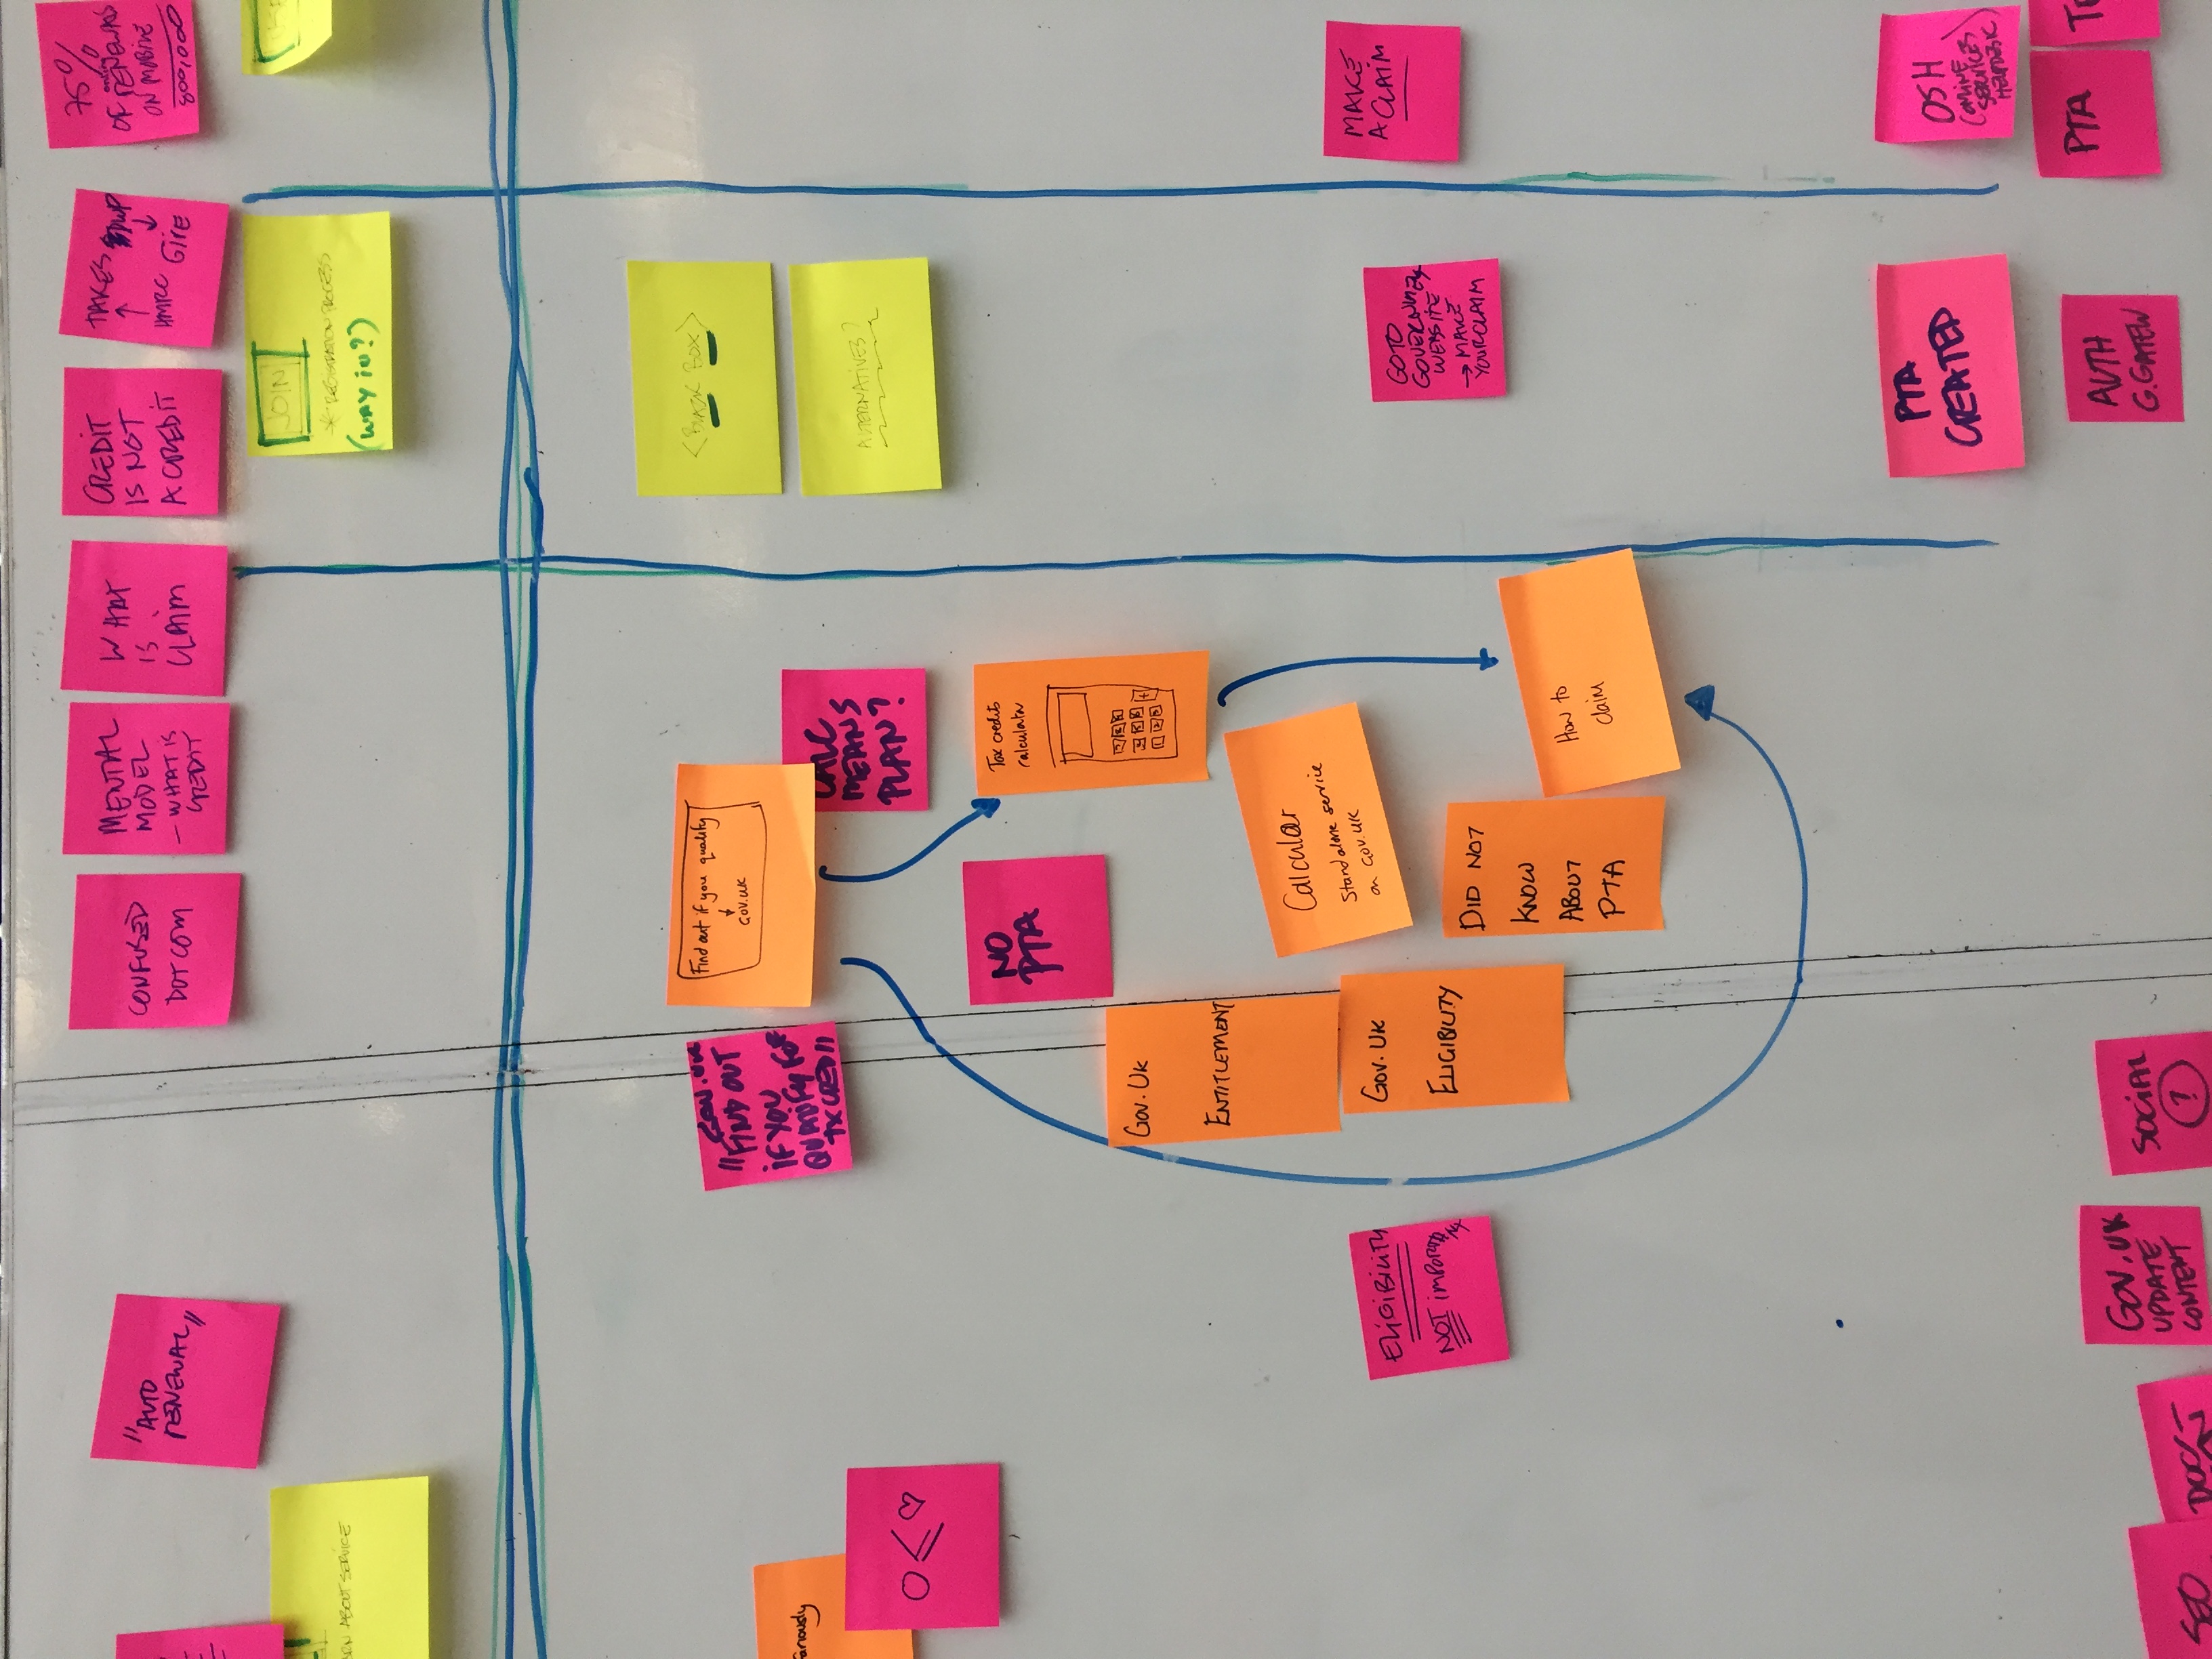 "AUTO
RENEWAL"
CONFUSED
DOT COM
MENTAL
MODEL
– WHAT IS
CREDIT
WHAT
IS
CLAIM
CREDIT
IS NOT
A CREDIT
TAKES DWP
↑ ↓
HMRC GIVE
75%
online
OF RENEWALS
ON MOBILE
800,000
ABOUT SERVICE
JOIN
* REGISTRATION PROCESS
(WAY IN?)
GOV.UK
"FIND OUT
IF YOU
QUALIFY FOR
TX CRED"
Find out if you qualify
↓
GOV.UK
CALC
MEANS
PLAN?
<BLACK BOX>
ALTERNATIVES?
O ≤ ♡
NO
PTA
Tax credits
calculatr
GOV.UK
ENTITLEMENT
Calculator
Standalone service
on GOV.UK
GOV.UK
ELIGIBILITY
ELIGIBILITY
NOT IMPORTANT
DID NOT
KNOW
ABOUT
PTA
How to
claim
GO TO
GOVERNMENT
WEBSITE
→ MAKE
YOUR CLAIM
MAKE
A CLAIM
PTA
CREATED
OSH
(ONLINE
SERVICES
HELPDESK)
AUTH
G.GATEW
PTA
GOV.UK
UPDATE
CONTENT
SOCIAL
?
SEO